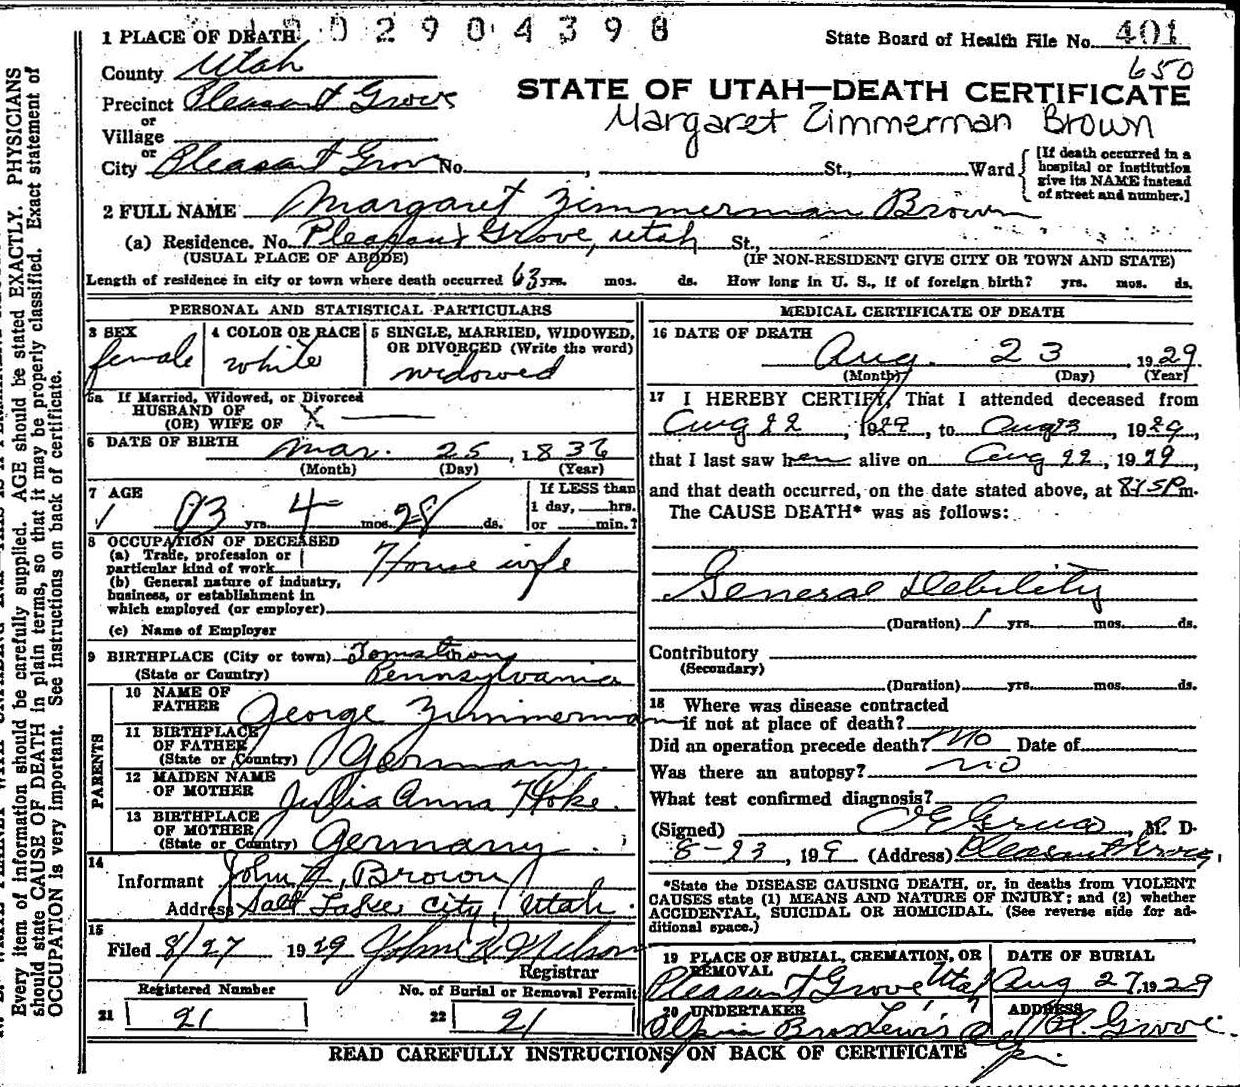 0 0 2 9 0 4 3 9 8
1 PLACE OF DEATH
State Board of Health File No. 401
650
County Utah
STATE OF UTAH—DEATH CERTIFICATE
Precinct Pleasant Grove
Margaret Zimmerman Brown
or
Village
or
City Pleasant Grove No. , St., Ward
[If death occurred in a
hospital or institution
give its NAME instead
of street and number.]
2 FULL NAME Margaret Zimmerman Brown
(a) Residence. No. Pleasant Grove, Utah St.,
(USUAL PLACE OF ABODE) (IF NON-RESIDENT GIVE CITY OR TOWN AND STATE)
Length of residence in city or town where death occurred 63 yrs. mos. ds. How long in U. S., if of foreign birth? yrs. mos. ds.
PERSONAL AND STATISTICAL PARTICULARS
3 SEX
female
4 COLOR OR RACE
white
5 SINGLE, MARRIED, WIDOWED,
OR DIVORCED (Write the word)
widowed
5a If Married, Widowed, or Divorced
HUSBAND OF
(OR) WIFE OF X
6 DATE OF BIRTH Mar. 25, 1836
(Month) (Day) (Year)
7 AGE
83 yrs. 4 mos. 28 ds.
If LESS than
1 day, hrs.
or min.?
8 OCCUPATION OF DECEASED
(a) Trade, profession or
particular kind of work House wife
(b) General nature of industry,
business, or establishment in
which employed (or employer)
(c) Name of Employer
9 BIRTHPLACE (City or town)
(State or Country) Pennsylvania
PARENTS
10 NAME OF
FATHER George Zimmerman
11 BIRTHPLACE
OF FATHER
(State or Country) Germany
12 MAIDEN NAME
OF MOTHER Julia Anna Hoke
13 BIRTHPLACE
OF MOTHER
(State or Country) Germany.
14
Informant John Z. Brown
Address Salt Lake City, Utah.
15
Filed 8/27 1929 John K. Nelson
Registrar
Registered Number
21 21
No. of Burial or Removal Permit
22 21
MEDICAL CERTIFICATE OF DEATH
16 DATE OF DEATH
Aug. 23, 1929
(Month) (Day) (Year)
17 I HEREBY CERTIFY, That I attended deceased from
Aug 22, 1929, to Aug 23, 1929,
that I last saw her alive on Aug 22, 1929,
and that death occurred, on the date stated above, at 8:15 P m.
The CAUSE DEATH* was as follows:
General Debility
(Duration) 1 yrs. mos. ds.
Contributory
(Secondary)
(Duration) yrs. mos. ds.
18 Where was disease contracted
if not at place of death?
Did an operation precede death? No Date of
Was there an autopsy? no
What test confirmed diagnosis?
(Signed) , M. D.
8-23, 199 (Address) Pleasant Grove,
*State the DISEASE CAUSING DEATH, or, in deaths from VIOLENT
CAUSES state (1) MEANS AND NATURE OF INJURY; and (2) whether
ACCIDENTAL, SUICIDAL OR HOMICIDAL. (See reverse side for ad-
ditional space.)
19 PLACE OF BURIAL, CREMATION, OR
REMOVAL
Pleasant Grove Utah
DATE OF BURIAL
Aug 27, 1929
20 UNDERTAKER
ADDRESS
Pl. Grove.
READ CAREFULLY INSTRUCTIONS ON BACK OF CERTIFICATE
Every item of information should be carefully supplied. AGE should be stated EXACTLY. PHYSICIANS
should state CAUSE OF DEATH in plain terms, so that it may be properly classified. Exact statement of
OCCUPATION is very important. See instructions on back of certificate.